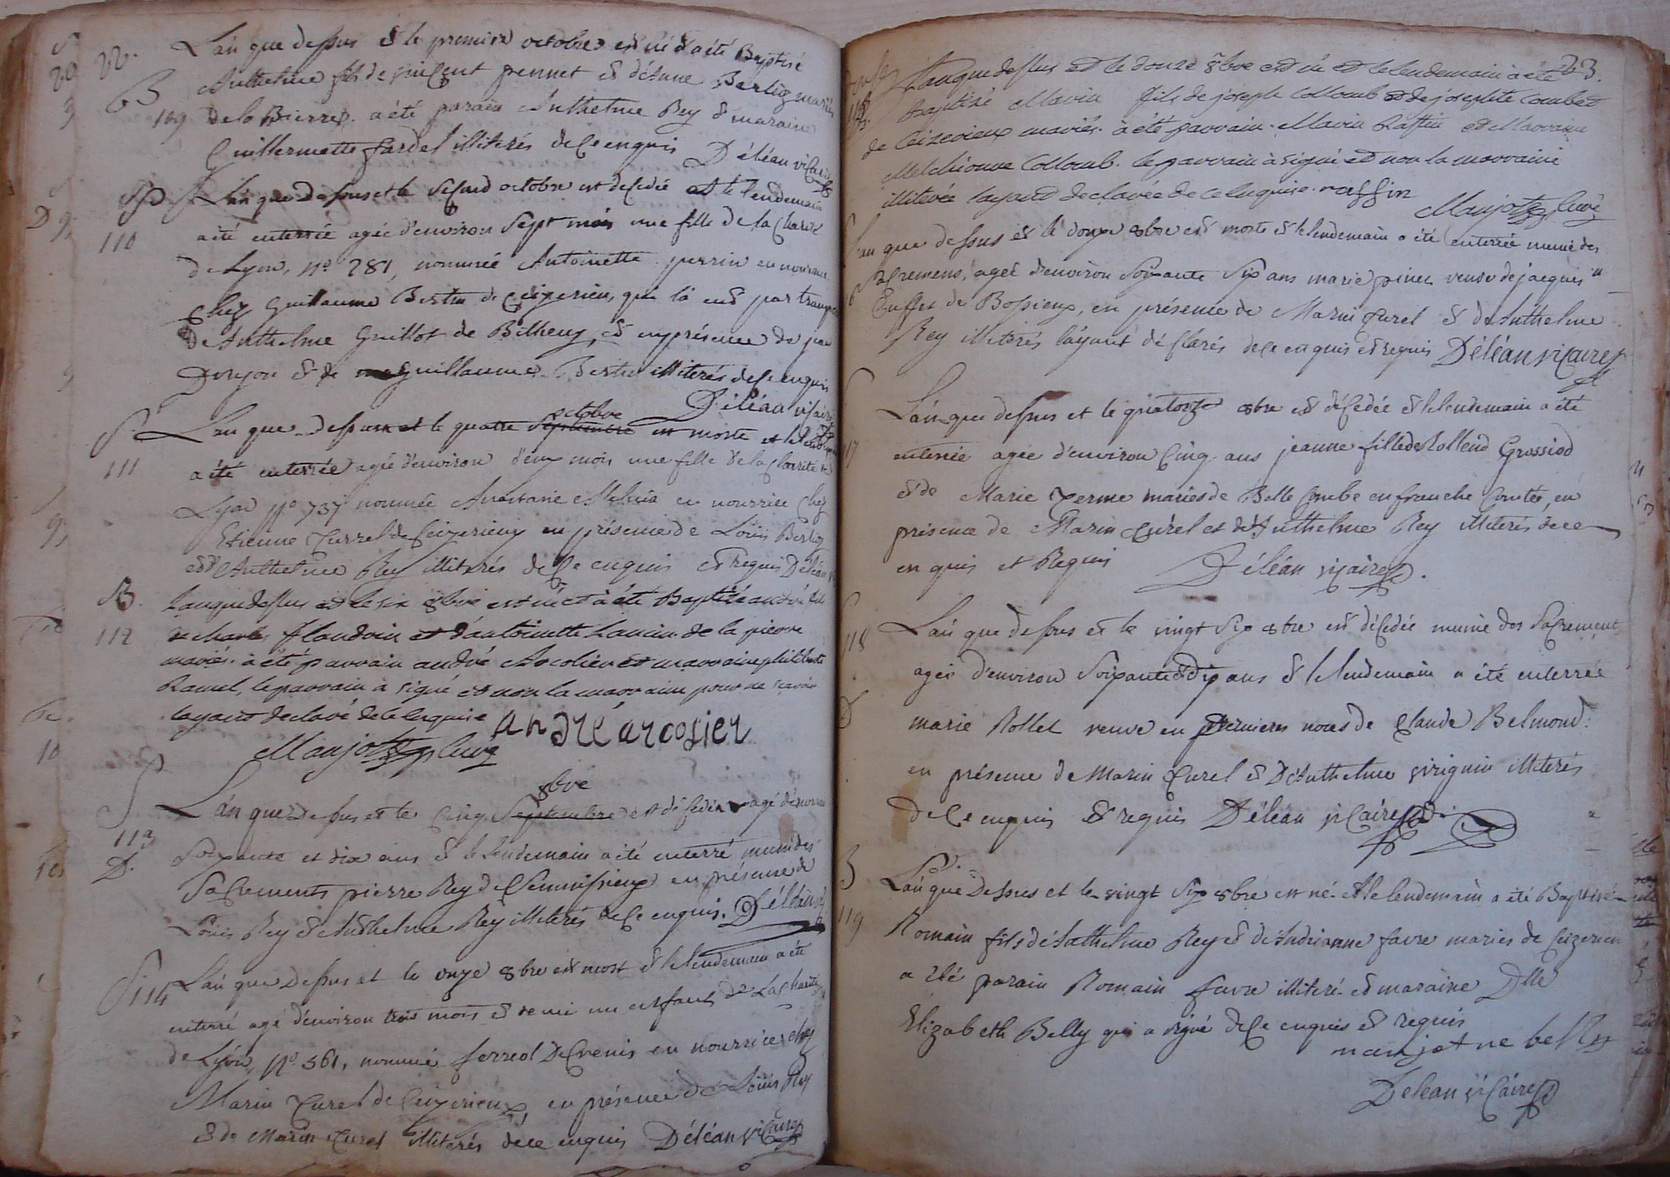 L'an que dessus & le premier octobre est né & a été Baptisé
B
Anthelme fils de vincent pennet & d'Anne Berlioz mariés
109
de la Pierre. a été parain Anthelme Rey & maraine
Guillermette fardel illiterés de ce enquis Déléan vicaire
L'an que dessus et le second octobre est decedée et le lendemain
110
a été enterrée agée d'environ sept mois une fille de la Charité
de Lyon, n° 281, nommée Antoinette perrin en nourrice
chez Guillaume Bertin de Ceizerieu, que là eus par
d'Anthelme Guillot de Bilheug, & en présence de
& de Guillaume Bertin illiterés de ce enquis
Déléan vicaire
octobre
L'an que dessus et le quatre septembre est morte et le lendemain
111
a été enterrée agée d'environ deux mois une fille de la charité de
Lyon n° 737 nommée Anastasie en nourrice chez
Etienne Currel de Ceizerieu en présence de Loüis Berlioz
et d'Anthelme Rey illiterés de ce enquis et requis Déléan
B.
Lanque dessus et le six 8bre est né et a été Baptisé andré fils
112
de charles flaudoin et d'antoinette de la pierre
mariés. a été parrain andré Arcosier et marraine philiberte
Ramel, le parrain a signé et non la marraine pour ne savoir
layant declaré de ce Enquise andré arcosier
Manjot curé
8bre
L'an que dessus et le cinq Septembre est décédé agé d'environ
113
D.
soixante et dix ans & le lendemain a été enterré muni des
Sacrements pierre Rey de en présence de
Loüis Rey & Anthelme Rey illiterés de ce enquis. Déléan
114
L'an que dessus et le onze 8bre est mort & le lendemain a été
enterré agé d'environ trois mois & demi un enfant de La Charité
de Lyon, n° 561, nommé ferreol Decrenis en nourrice chez
Marin Curel de Ceizerieu, en présence de Loüis Rey
& de Marin Curel illiterés de ce enquis Déléan vicaire
23.
Lanque dessus et le douze 8bre est né et le lendemain a été
baptisé Marin fils de joseph Collomb et de josephte Combet
de Ceizerieux mariés. a été parrain Marin Raffin et Marraine
Melchionne Collomb. le parrain a signé et non la marraine
illiterée layant declarée de ce Enquise. raffin
Manjot curé
L'an que dessus et le douze 8bre est morte & le lendemain a été enterrée munie des
sacremens, agée d'environ soixante six ans marie pinet veuve de jacques
Cuffet de Bossieux, en présence de Marin Curel & d'Anthelme
Rey illiterés l'ayant déclarés de ce enquis et requis Déléan vicaire
L'an que dessus et le quatorze 8bre est décédée & le lendemain a été
117
enterrée agée d'environ cinq ans jeanne fille de Rollend Grossiod
et de Marie Perme mariés de Belle Combe en franche Comté, en
présence de Marin Curel et d'Anthelme Rey illiterés de ce
enquis et Requis Déléan vicaire.
118
L'an que dessus et le vingt six 8bre est décédée munie des Sacrements
agée d'environ soixante & dix ans & le lendemain a été enterrée
D
marie Rollet veuve en premieres noces de Claude Belmond:
en présence de Marin Curel & D'Anthelme viriguin illiterés
de ce enquis & requis Déléan vicaire
B
L'an que dessus et le vingt six 8bre est né et le lendemain a été Baptisé
119
Romain fils d'Anthelme Rey & d'Andrianne favre mariés de Ceizerieu
a été parain Romain favre illiteré & maraine Dlle
Elizabeth Belly qui a signé de ce enquis & requis
manjot ne belly
Déléan vicaire